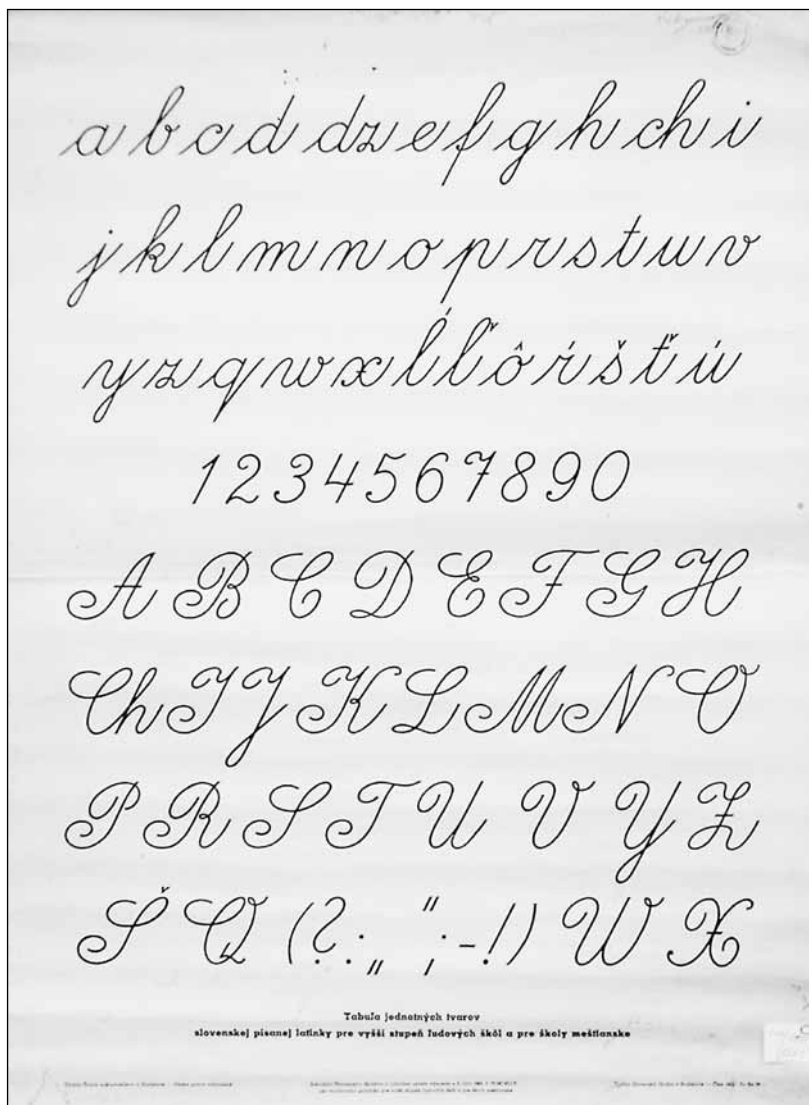 a b c d dz e f g h ch i
j k l m n o p r s t u v
y z q w x ĺ ľ ô ŕ š ť ú
1 2 3 4 5 6 7 8 9 0
A B C D E F G H
Ch I J K L M N O
P R S T U V Y Z
Š Q ( ? : „ “ ; - ! ) W X
Tabuľa jednotných tvarov
slovenskej písanej latinky pre vyšší stupeň ľudových škôl a pre školy meštianske